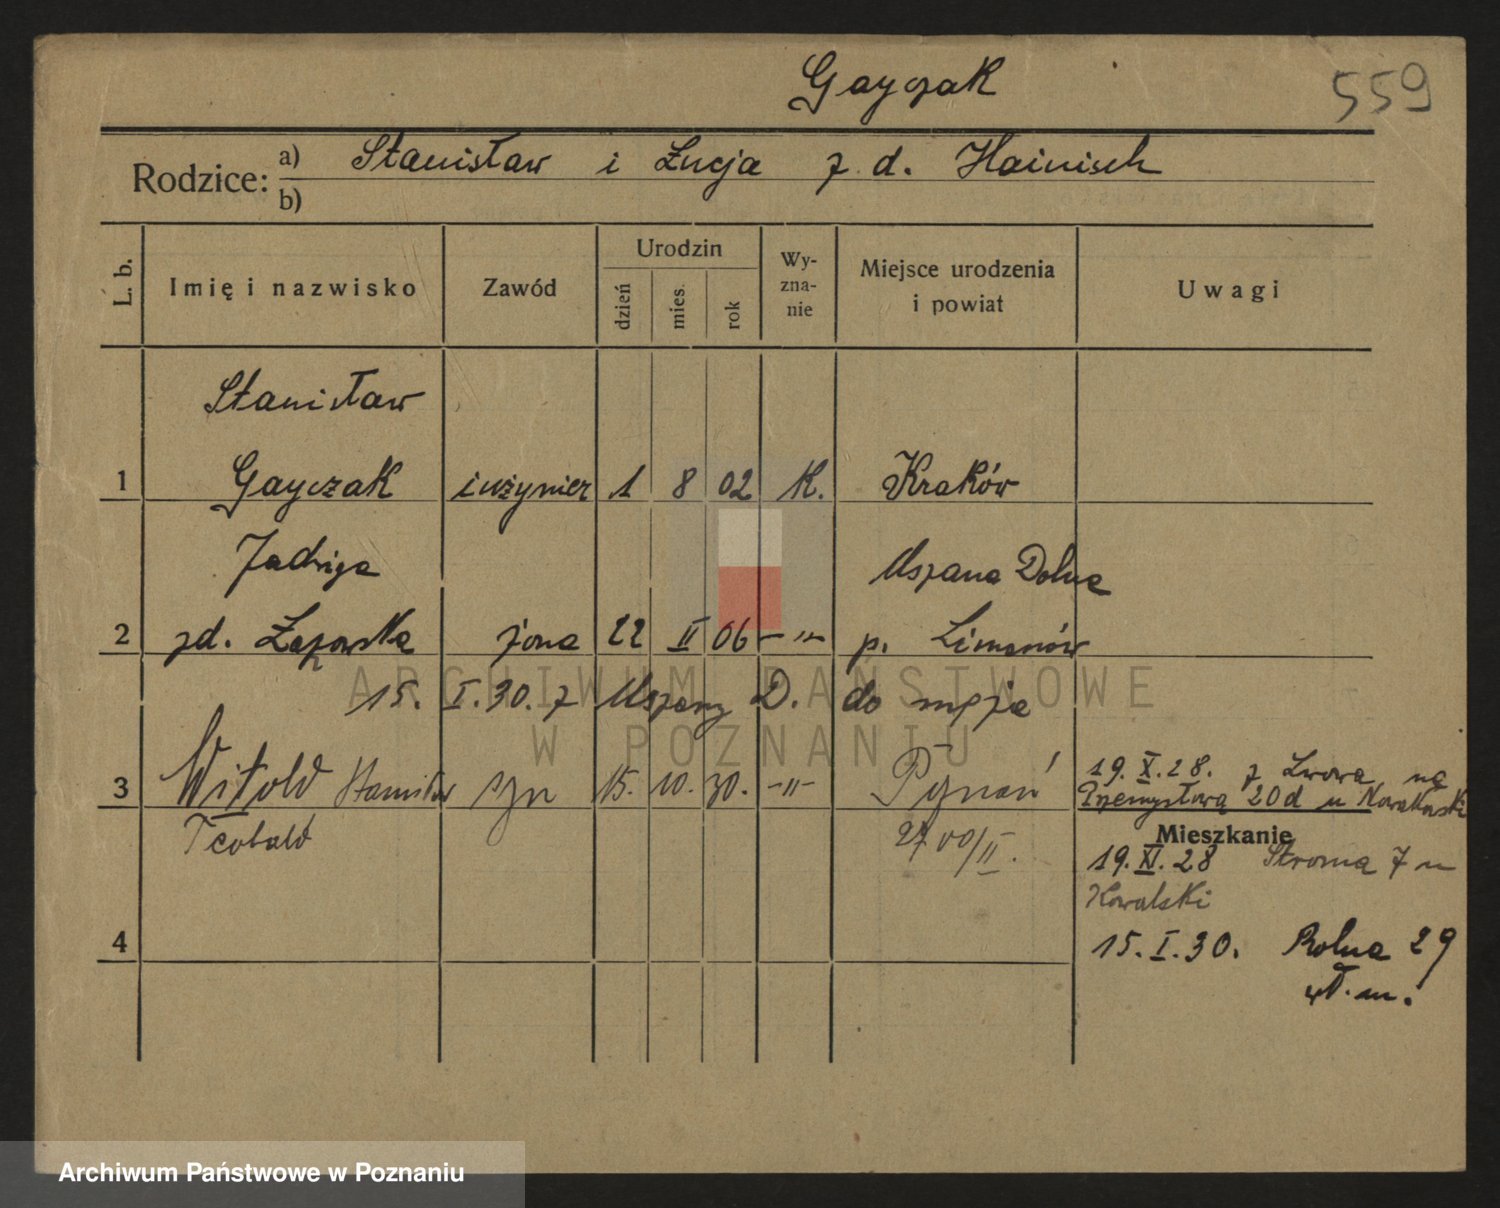 Gayczak
559
Rodzice: a) Stanisław i Łucja z d. Hainisch
b)
L. b.
Imię i nazwisko
Zawód
Urodzin
dzień
mies.
rok
Wy-
zna-
nie
Miejsce urodzenia
i powiat
Uwagi
Stanisław
1 Gayczak inżynier 1 8 02 K. Kraków
Jadwiga Mszana Dolna
2 zd. Łazowska żona 22 II 06 -"- p. Limanów
15. I. 30. z Mszany D. do męża
3 Witold Stanisław syn 15. 10. 30. -"- Poznań
Teobald
2700/II.
19. X. 28. z Lwowa na
Przemysłową 20d u Nowakowski
Mieszkanie
19. XI. 28 Stroma 7 u
Kowalski
4
15. I. 30. Rolna 29
wł. m.
ARCHIWUM PAŃSTWOWE
W POZNANIU
Archiwum Państwowe w Poznaniu